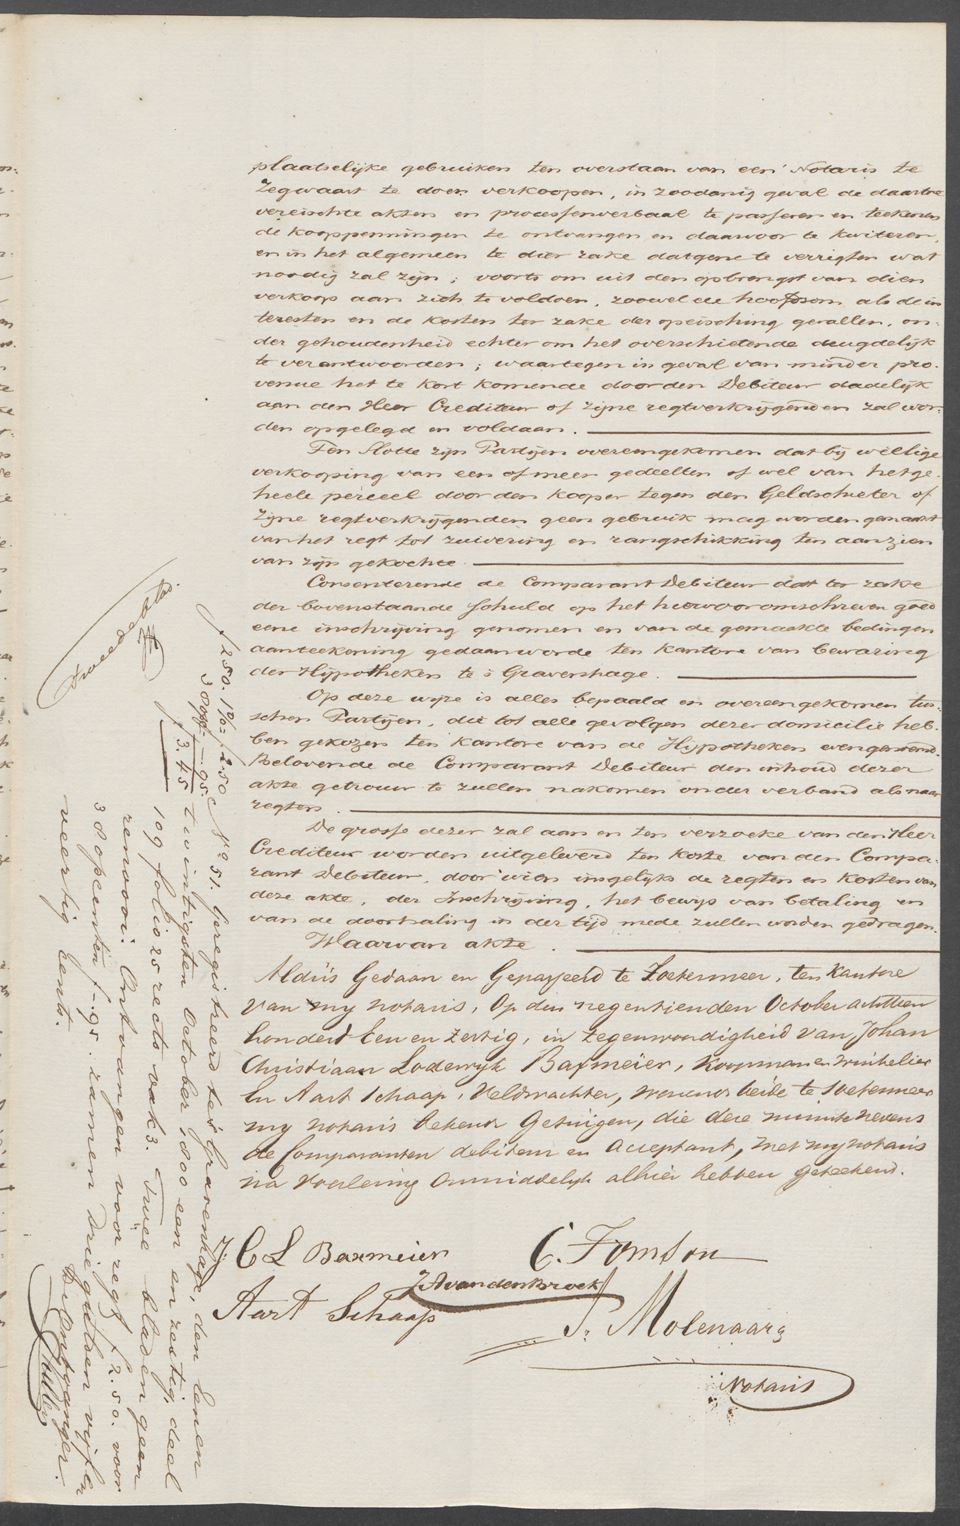 plaatselijke gebruiken ten overstaan van een Notaris te
Zegwaart te doen verkoopen, in zoodanig geval de daartoe
vereischte akten en processenverbaal te passeren en teekenen
de kooppenningen te ontvangen en daarvoor te kwiteren,
en in het algemeen te dier zake datgene te verrigten wat
noodig zal zijn; voorts om uit den opbrengst van dien
verkoop aan zich te voldoen, zoowel de hoofdsom als de in
teresten en de kosten ter zake der opeisching gevallen, on-
der gehoudenheid echter om het overschietende deugdelijk
te verantwoorden; waartegen in geval van minder pro-
venue het te kort komende door den Debiteur dadelijk
aan den Heer Crediteur of zijne regtverkrijgenden zal wor-
den opgelegd en voldaan.
Ten Slotte zijn Partijen overeengekomen dat bij willige
verkooping van een of meer gedeelten of wel van het ge-
heele perceel door den kooper tegen den Geldschieter of
zijne regtverkrijgenden geen gebruik mag worden gemaakt
van het regt tot zuivering en rangschikking ten aanzien
van zijn gekochte.
Consenterende de Comparant Debiteur dat ter zake
der bovenstaande schuld op het hiervoor omschreven goed
eene inschrijving genomen en van de gemaakte bedingen
aanteekening gedaan worde ten kantore van bewaring
der Hypotheken te 's Gravenhage.
Op deze wijze is alles bepaald en overeengekomen tus-
schen Partijen, die tot alle gevolgen dezer domicilie heb-
ben gekozen ten kantore van de Hypotheken evengemeld.
Belovende de Comparant Debiteur den inhoud dezer
akte getrouw te zullen nakomen onder verband als naar
regten.
De grosse dezer zal aan en ten verzoeke van den Heer
Crediteur worden uitgeleverd ten koste van den Compa-
rant Debiteur, door wien insgelijks de regten en kosten van
deze akte, der Inschrijving, het bewijs van betaling en
van de doorhaling in der tijd mede zullen worden gedragen.
Waarvan akte.
Aldus Gedaan en Gepasseerd te Zoetermeer, ten kantore
van my notaris, op den negentienden October achttien
honderd Een en zestig, in tegenwoordigheid van Johan
Christiaan Lodewyk Baxmeier, Koopman en Winkelier
En Aart Schaap, Veldwachter, wonende beide te Zoetermeer
my notaris bekend Getuigen, die deze minute nevens
de Comparanten debiteur en Acceptant, met my notaris
na Voorlezing Onmiddelyk alhier hebben geteekend.
J: C L Baxmeier
C. Tomson
JA van den Broek
Aart Schaap
P. Molenaar
Notaris
Tweede
f 250. 1% f 2.50
38 opc " - .95
f 3.45
No 51. Geregistreerd te 's Gravenhage, den Eenen
twintigsten October 1800 een en zestig, deel
109 folio 25 recto vak 3. Twee bladen geen
renvooi. Ontvangen voor regt f 2.50. voor
38 opcenten f -.95. zamen Drie gulden vijf en
veertig Cents.
De Ontvanger.